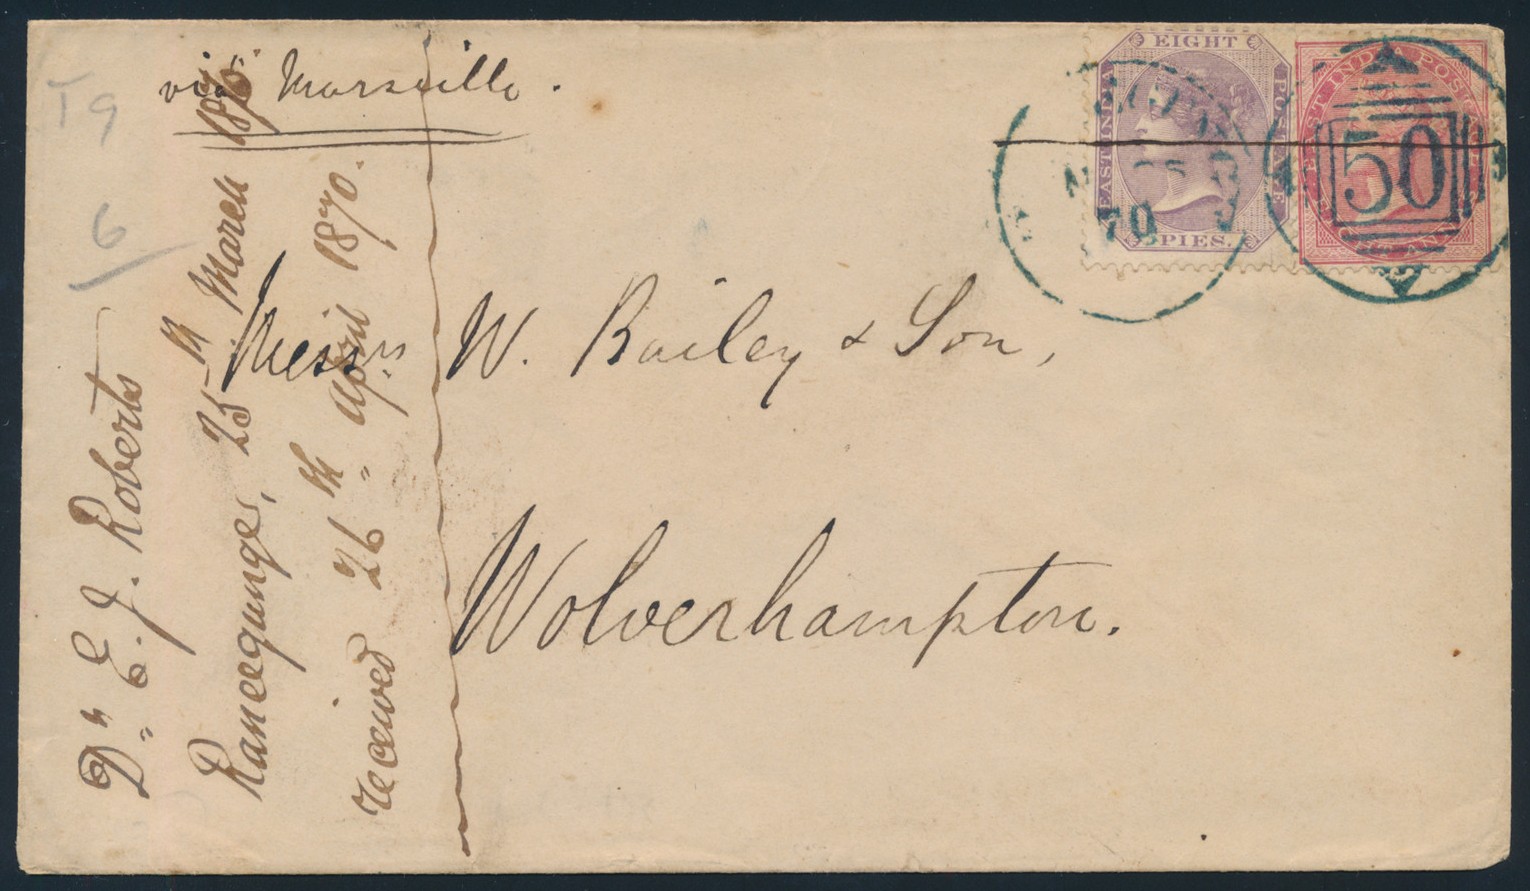 via Marseille.
T 9
6
Messrs W. Bailey & Son,
Wolverhampton.
Dr E. J. Roberts
Raneegunge, 25th March 1870
received 26th April 1870.
EIGHT
EAST INDIA
POSTAGE
PIES.
70
EAST INDIA POSTAGE
50